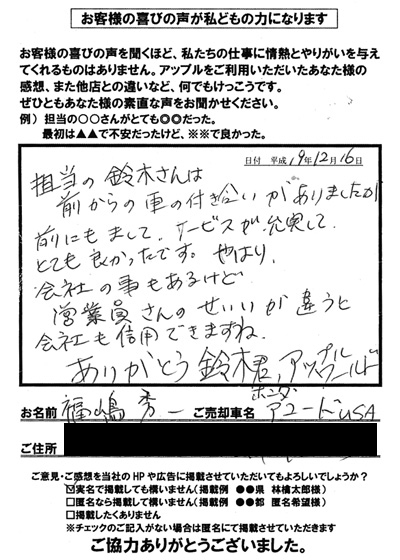 お客様の喜びの声が私どもの力になります
お客様の喜びの声を聞くほど、私たちの仕事に情熱とやりがいを与え
てくれるものはありません。アップルをご利用いただいたあなた様の
感想、また他店との違いなど、何でもけっこうです。
ぜひともあなた様の素直な声をお聞かせください。
例）担当の〇〇さんがとても◎◎だった。
最初は▲▲で不安だったけど、※※で良かった。
日付 平成 19年12月16日
担当の鈴木さんは
前からの車の付き合いがありましたが
前にもまして、サービスが充実して
とても良かったです。やはり、
会社の事もあるけど
営業員さんのせいいが違うと
会社も信用できますね。
ありがとう鈴木君、アップルワールド
お名前 福嶋秀一 ご売却車名 ホンダ アコードUSA
ご住所
ご意見・ご感想を当社のHPや広告に掲載させていただいてもよろしいでしょうか？
☑実名で掲載しても構いません（掲載例 ●●県 林檎太郎様）
□匿名なら掲載して構いません（掲載例 ●●都 匿名希望様）
□掲載したくありません
※チェックのご記入がない場合は匿名にて掲載させていただきます
ご協力ありがとうございました。